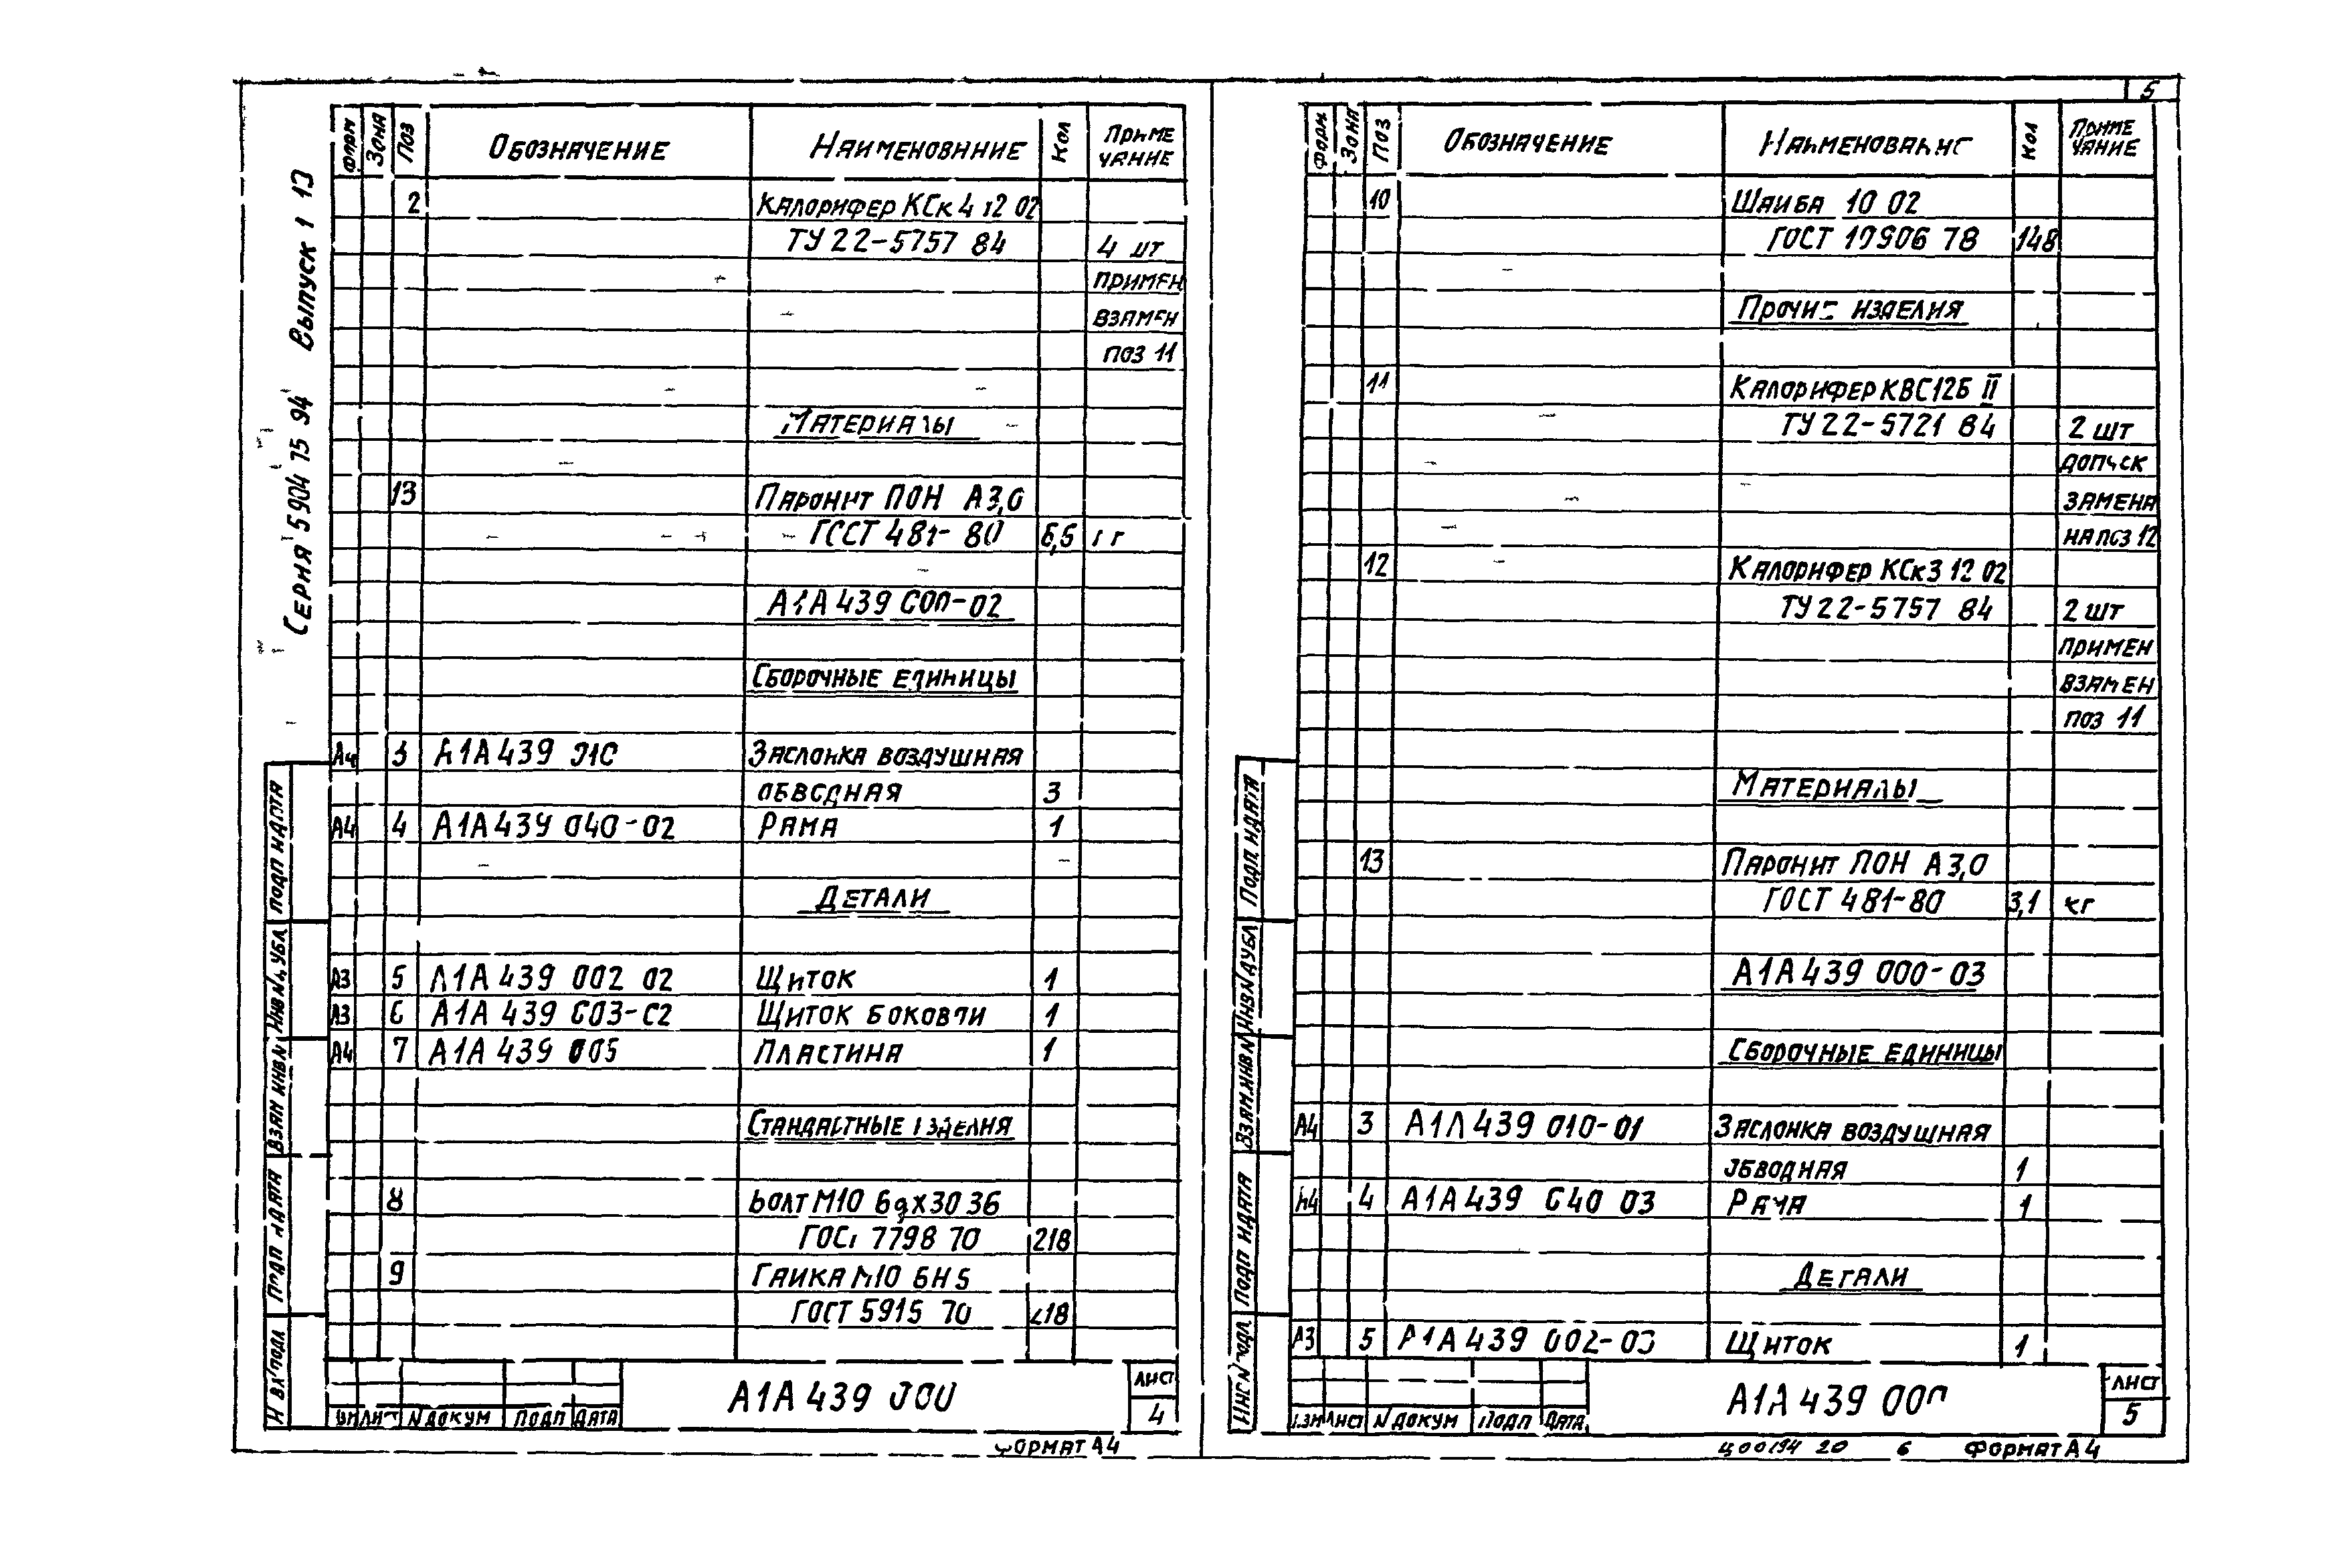 5
Серия 5904 75 94 Выпуск 1 13
Форм Зона Поз Обозначение Наименование Кол Приме
чание
2 Калорифер КСк 4 12 02
ТУ 22-5757 84 4 шт
примен
взамен
поз 11
Материалы
13 Паронит ПОН А3,0
ГОСТ 481-80
А1А 439 000-02
Сборочные единицы
А4 3 А1А 439 010 Заслонка воздушная
обводная 3
А4 4 А1А 439 040-02 Рама 1
Детали
А3 5 А1А 439 002 02 Щиток 1
А3 6 А1А 439 003-02 Щиток боковой 1
А4 7 А1А 439 005 Пластина 1
Стандартные изделия
8 Болт М10 6gх30 36
ГОСТ 7798 70 218
9 Гайка М10 6Н 5
ГОСТ 5915 70 218
Подп и дата
Инв N дубл
Взам инв N
Подп и дата
Инв N подл
Изм Лист N докум Подп Дата
А1А 439 000
Лист
4
Формат А4
Форм Зона Поз Обозначение Наименование Кол Приме
чание
10 Шайба 10 02
ГОСТ 10906 78 148
Прочие изделия
11 Калорифер КВС12Б II
ТУ 22-5721 84 2 шт
допуск
замена
на поз 12
12 Калорифер КСк3 12 02
ТУ 22-5757 84 2 шт
примен
взамен
поз 11
Материалы
13 Паронит ПОН А3,0
ГОСТ 481-80 3,1 кг
А1А 439 000-03
Сборочные единицы
А4 3 А1А 439 010-01 Заслонка воздушная
обводная 1
А4 4 А1А 439 040 03 Рама 1
Детали
А3 5 А1А 439 002-03 Щиток 1
Подп. и дата
Инв N дубл
Взам. инв N
Подп и дата
Инв N подл
Изм Лист N докум Подп Дата
А1А 439 000
Лист
5
ц00194 20 6 Формат А4